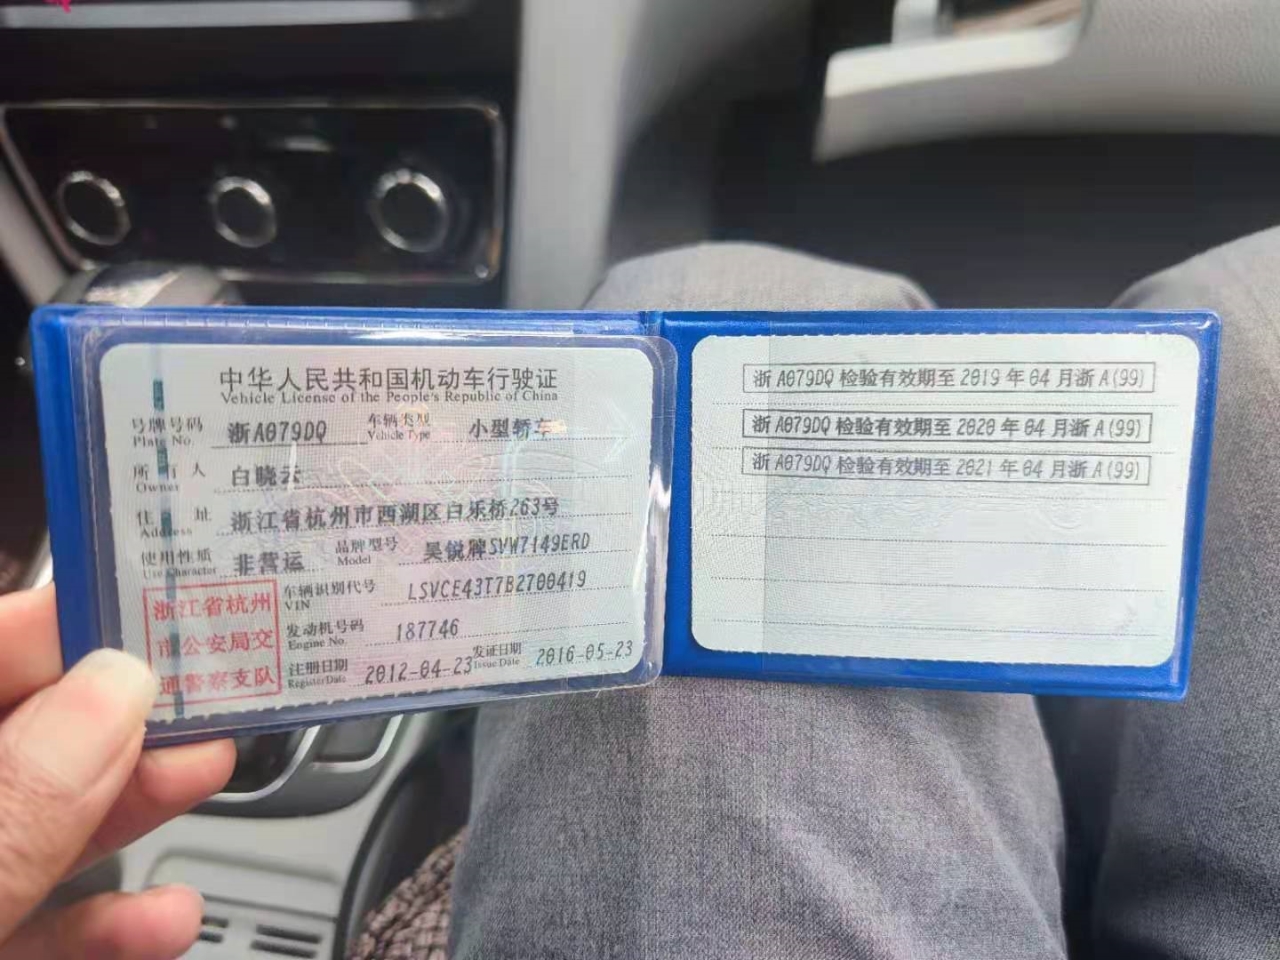 中华人民共和国机动车行驶证
Vehicle License of the People's Republic of China
号牌号码 浙A079DQ 车辆类型 小型轿车
Plate No. Vehicle Type
所有人 白晓云
Owner
住址 浙江省杭州市西湖区白乐桥263号
Address
使用性质 非营运 品牌型号 昊锐牌SVW7149ERD
Use Character Model
浙江省杭州
市公安局交
通警察支队
车辆识别代号 LSVCE43T7B2700419
VIN
发动机号码 187746
Engine No.
注册日期 2012-04-23 发证日期 2016-05-23
Register Date Issue Date
浙A079DQ检验有效期至2019年04月浙A(99)
浙A079DQ检验有效期至2020年04月浙A(99)
浙A079DQ检验有效期至2021年04月浙A(99)